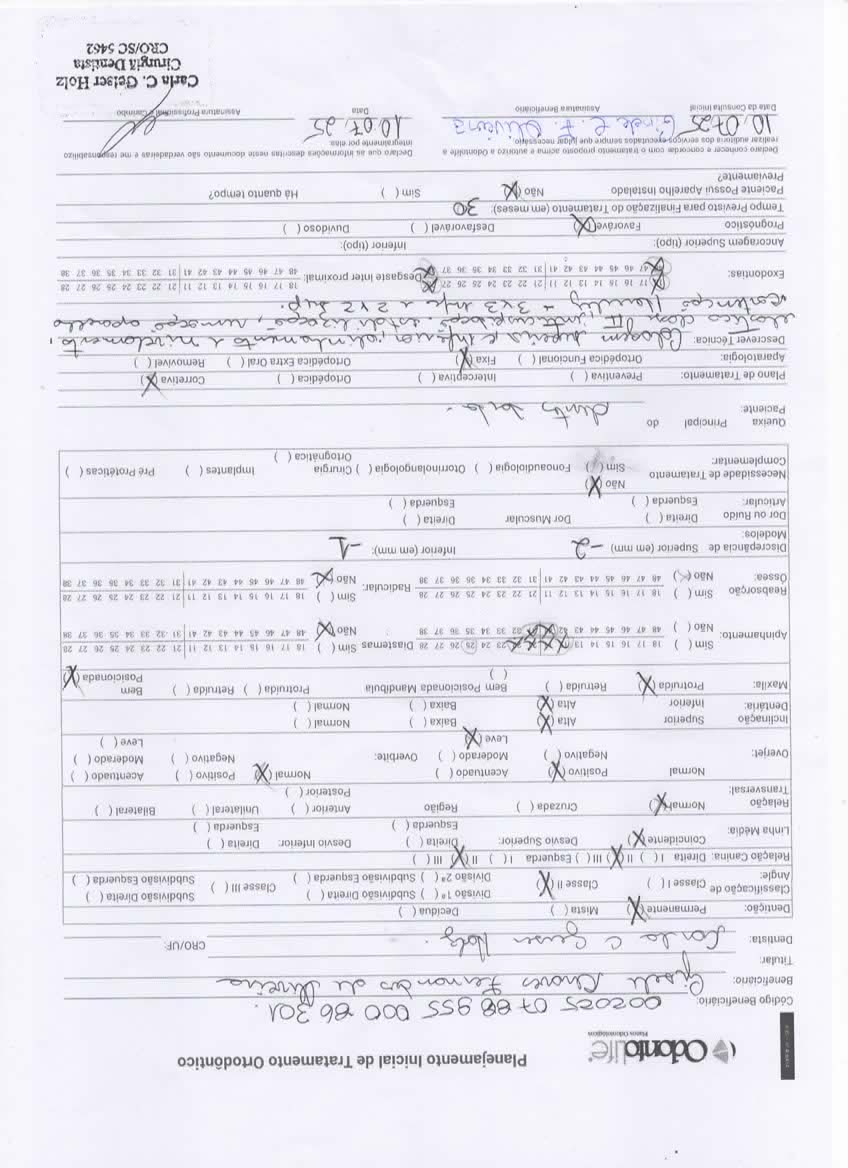 Planejamento Inicial de Tratamento Ortodôntico
OdontoLife
Planos Odontológicos
Código Beneficiário: 002025 0788 955 000 86 301.
Beneficiário: Gisele Chaves Fernandes de Oliveira
Titular:
Dentista: Carla C Geiser Holz. CRO/UF:
Dentição: Permanente (X) Mista ( ) Decídua ( )
Classificação de Angle: Classe I ( ) Classe II (X) Divisão 1ª ( ) Subdivisão Direita ( ) Classe III ( ) Subdivisão Direita ( )
Divisão 2ª ( ) Subdivisão Esquerda ( ) Subdivisão Esquerda ( )
Relação Canina: Direita I ( ) II (X) III ( ) Esquerda I ( ) II (X) III ( )
Linha Média: Coincidente (X) Desvio Superior: Direita ( ) Desvio Inferior: Direita ( )
Esquerda ( ) Esquerda ( )
Relação Transversal: Normal (X) Cruzada ( ) Região Anterior ( ) Unilateral ( ) Bilateral ( )
Posterior ( )
Overjet: Normal Positivo (X) Acentuado ( ) Overbite: Normal (X) Positivo ( ) Acentuado ( )
Negativo ( ) Moderado ( ) Negativo ( ) Moderado ( )
Leve (X) Leve ( )
Inclinação Dentária: Superior Alta (X) Baixa ( ) Normal ( )
Inferior Alta (X) Baixa ( ) Normal ( )
Maxila: Protruída (X) Retruída ( ) Bem Posicionada ( ) Mandíbula Protruída ( ) Retruída ( ) Bem Posicionada (X)
Apinhamento: Sim ( ) 18 17 16 15 14 13 24 25 26 27 28 Diastemas Sim ( ) 18 17 16 15 14 13 12 11 | 21 22 23 24 25 26 27 28
Não ( ) 48 47 46 45 44 43 33 34 35 36 37 38 Não (X) 48 47 46 45 44 43 42 41 | 31 32 33 34 35 36 37 38
Reabsorção Óssea: Sim ( ) 18 17 16 15 14 13 12 11 | 21 22 23 24 25 26 27 28 Radicular: Sim ( ) 18 17 16 15 14 13 12 11 | 21 22 23 24 25 26 27 28
Não (X) 48 47 46 45 44 43 42 41 | 31 32 33 34 35 36 37 38 Não (X) 48 47 46 45 44 43 42 41 | 31 32 33 34 35 36 37 38
Discrepância de Modelos: Superior (em mm) -2 Inferior (em mm): -1
Dor ou Ruído Articular: Direita ( ) Dor Muscular Direita ( )
Esquerda ( ) Esquerda ( )
Necessidade de Tratamento Complementar: Não (X)
Sim ( ) Fonoaudiologia ( ) Otorrinolangologia ( ) Cirurgia Ortognática ( ) Implantes ( ) Pré Protéticas ( )
Queixa Principal do Paciente: dentes tortos.
Plano de Tratamento: Preventiva ( ) Interceptiva ( ) Ortopédica ( ) Corretiva (X)
Aparatologia: Ortopédica Funcional ( ) Fixa (X) Ortopédica Extra Oral ( ) Removível ( )
Descrever Técnica: Colagem superior e inferior, alinhamento e nivelamento,
elástico classe II, intercuspidação, estabilização, remoção aparelho
contenção + 3x3 inf e 2x2 sup.
Exodontias: 18 17 16 15 14 13 12 11 | 21 22 23 24 25 26 27 28 Desgaste Inter proximal: 18 17 16 15 14 13 12 11 | 21 22 23 24 25 26 27 28
48 47 46 45 44 43 42 41 | 31 32 33 34 35 36 37 38 48 47 46 45 44 43 42 41 | 31 32 33 34 35 36 37 38
Ancoragem Superior (tipo): Inferior (tipo):
Prognóstico Favorável (X) Desfavorável ( ) Duvidoso ( )
Tempo Previsto para Finalização do Tratamento (em meses): 30
Paciente Possui Aparelho Instalado Previamente? Não (X) Sim ( ) Há quanto tempo?
Declaro conhecer e concordar com o tratamento proposto acima e autorizo a Odontolife a
realizar auditoria dos serviços executados sempre que julgar necessário.
Declaro que as informações descritas neste documento são verdadeiras e me responsabilizo
integralmente por elas.
10.07.25 Gisele C. F. Oliveira 10.07.25
Data da Consulta Inicial Assinatura Beneficiário Data Assinatura Profissional e Carimbo
Carla C. Geiser Holz
Cirurgiã Dentista
CRO/SC 5462